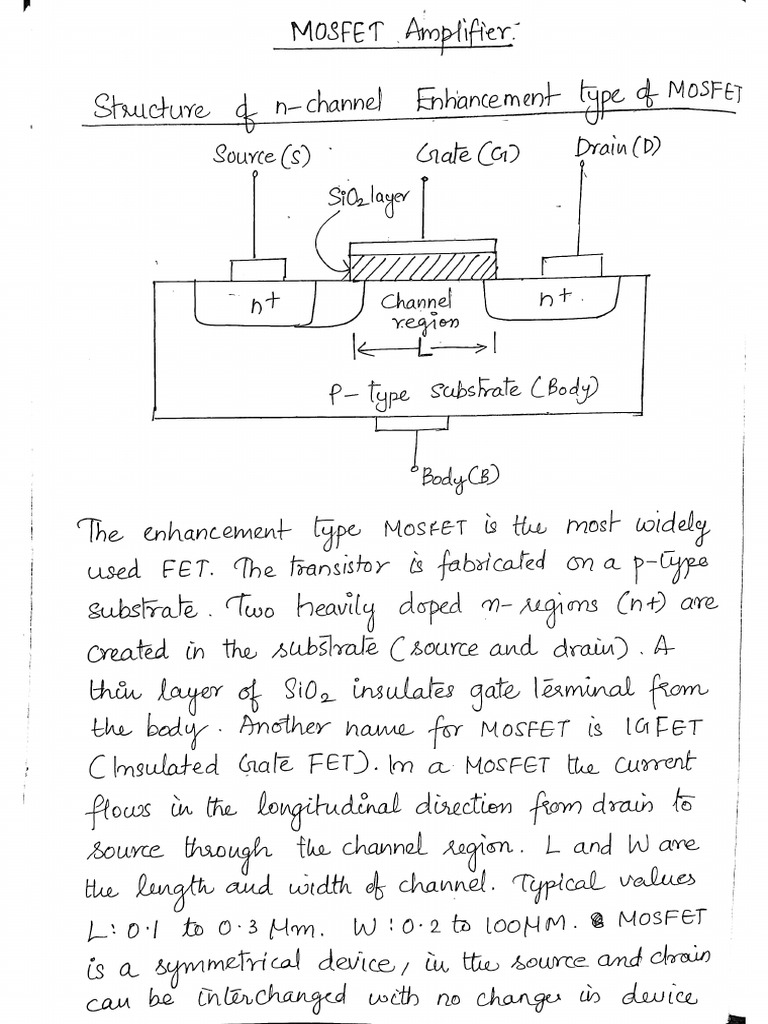 MOSFET Amplifier:-
Structure of n-channel Enhancement type of MOSFET
Source (S) Gate (G) Drain (D)
SiO2 layer
n+ Channel n+
region
L
P-type substrate (Body)
Body (B)
The enhancement type MOSFET is the most widely
used FET. The transistor is fabricated on a p-type
substrate. Two heavily doped n-regions (n+) are
created in the substrate (source and drain). A
thin layer of SiO2 insulates gate terminal from
the body. Another name for MOSFET is IGFET
(Insulated Gate FET). In a MOSFET the current
flows in the longitudinal direction from drain to
source through the channel region. L and W are
the length and width of channel. Typical values
L: 0.1 to 0.3 μm. W: 0.2 to 100μM. MOSFET
is a symmetrical device, in the source and drain
can be interchanged with no changes in device